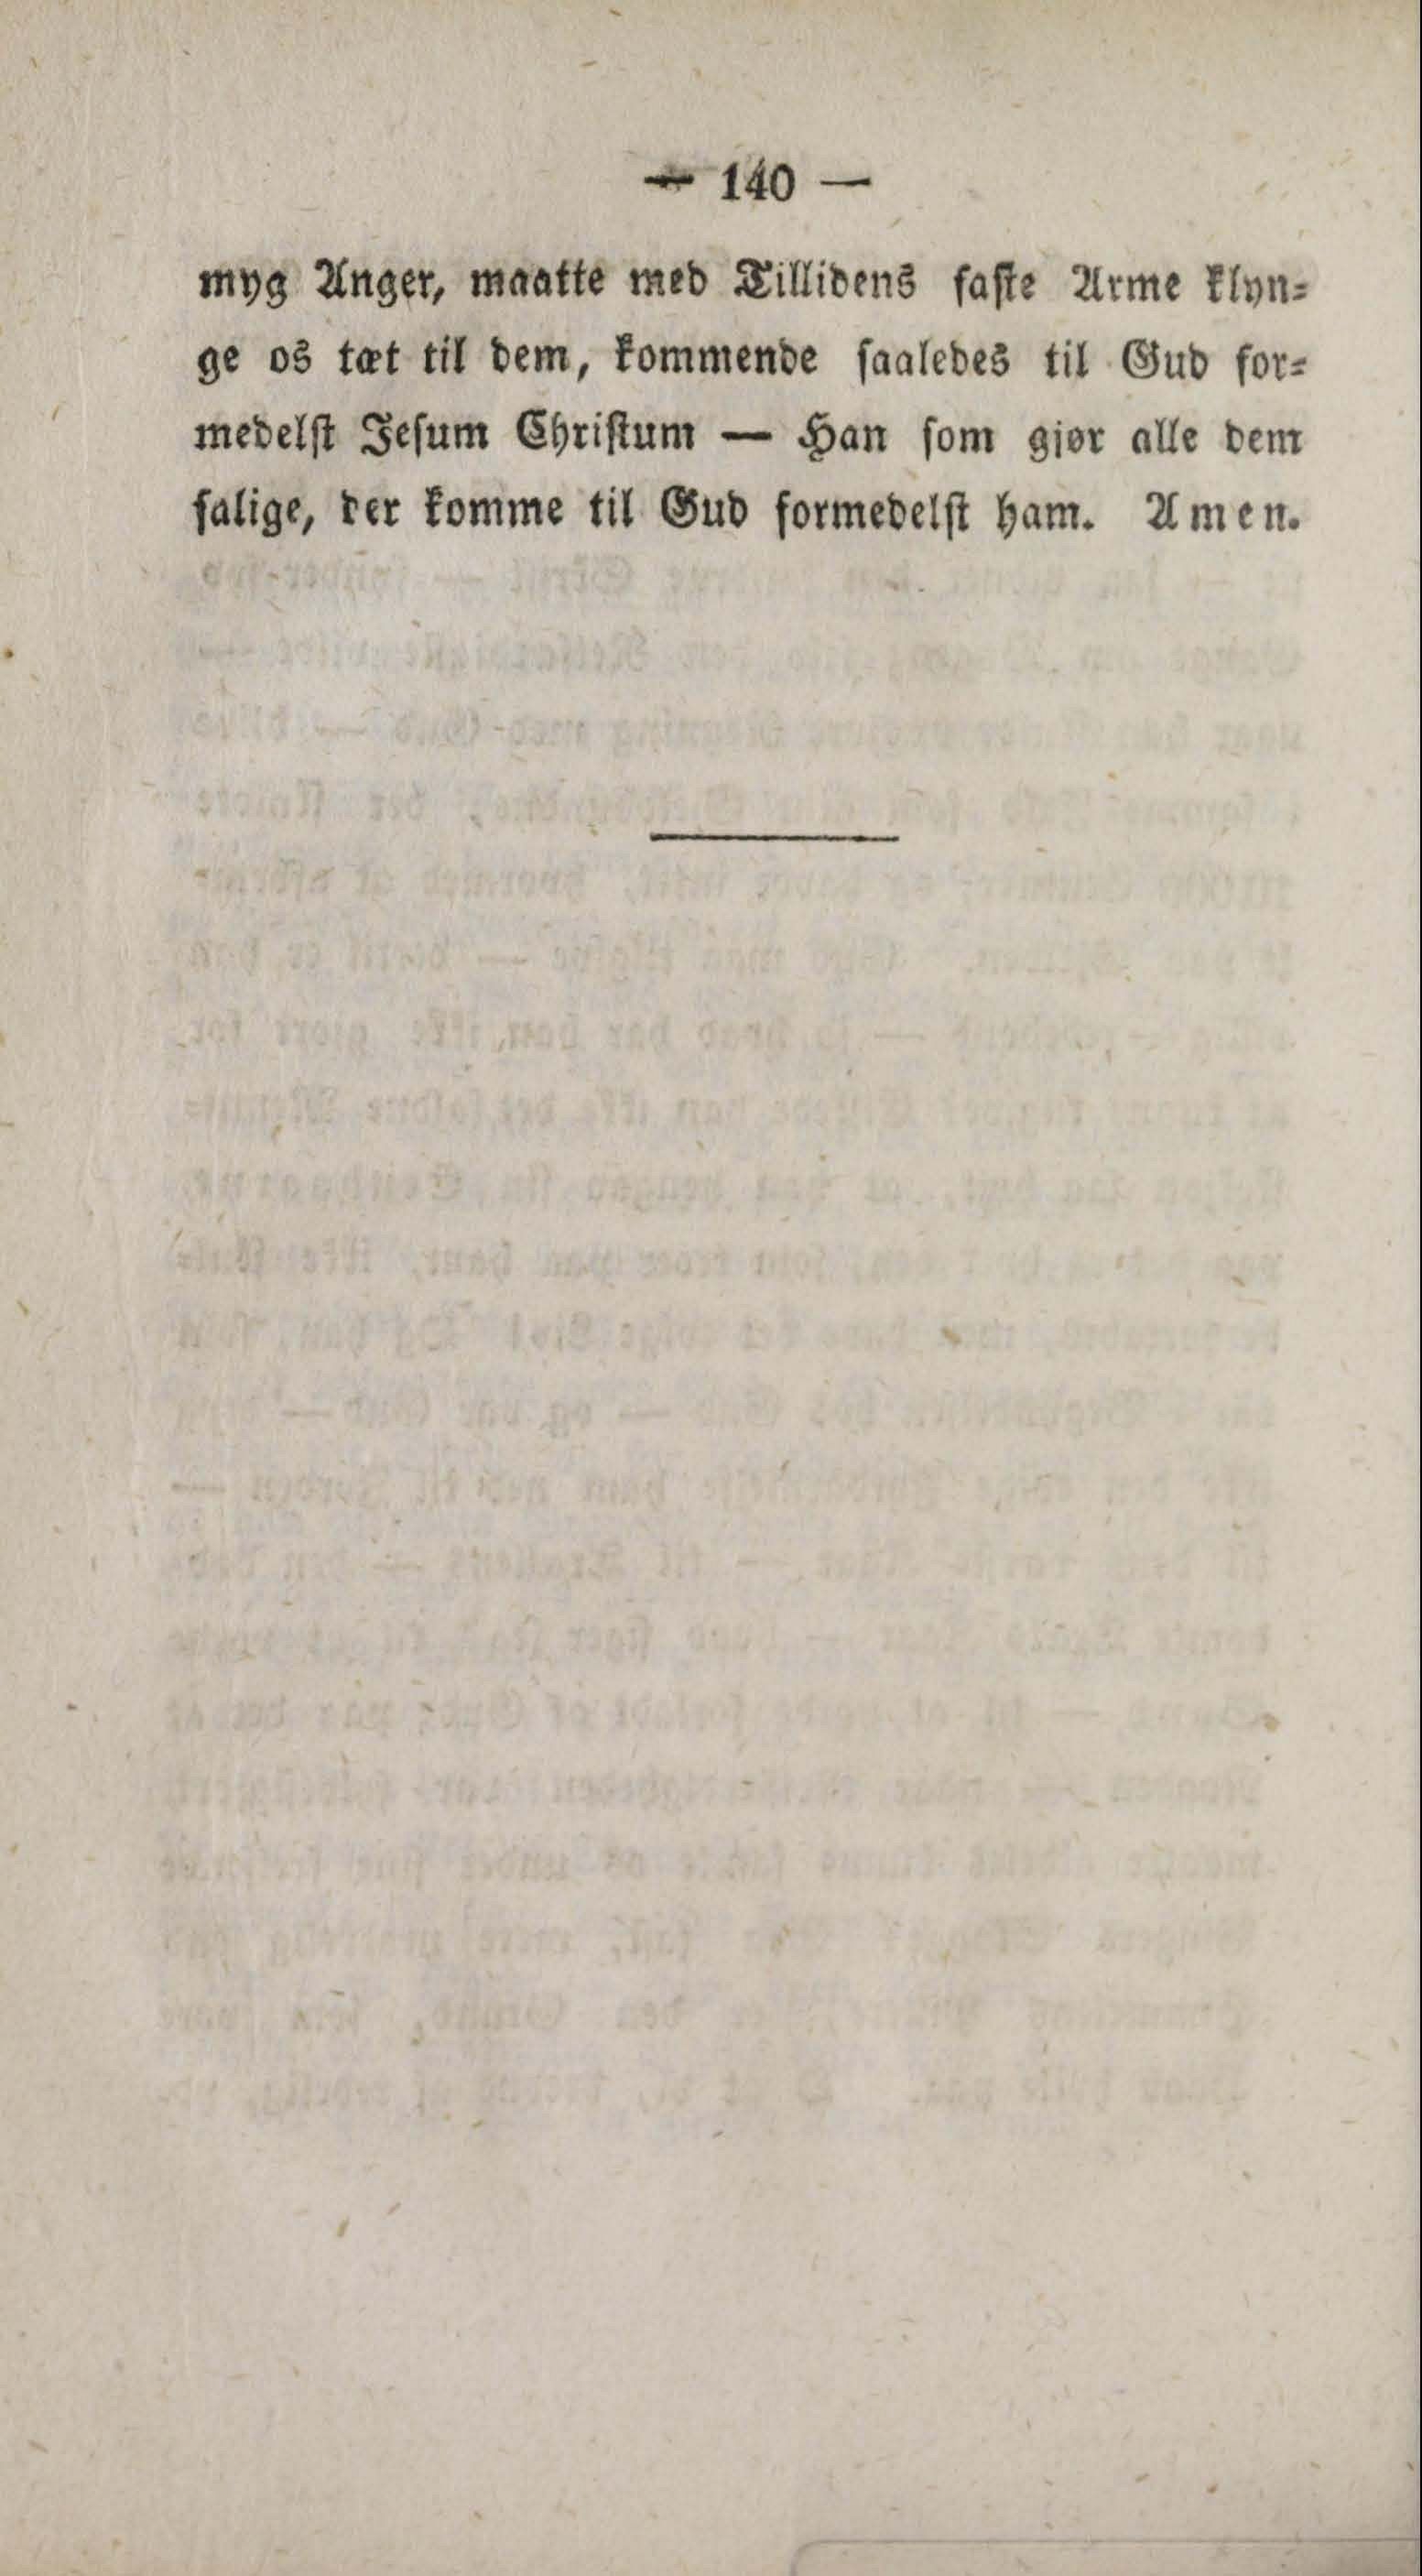 — 140 —
myg Anger, maatte med Tillidens faste Arme klyn-
ge os tæt til dem, kommende saaledes til Gud for-
medelst Jesum Christum — Han som gjør alle dem
salige, der komme til Gud formedelst ham. Amen.